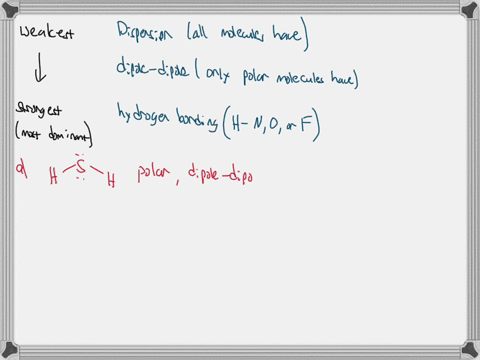 weakest Dispersion (all molecules have)
dipole-dipole (only polar molecules have)
strongest hydrogen bonding (H- N, O, or F)
(most dominant)
a) H S H polar, dipole-dipo